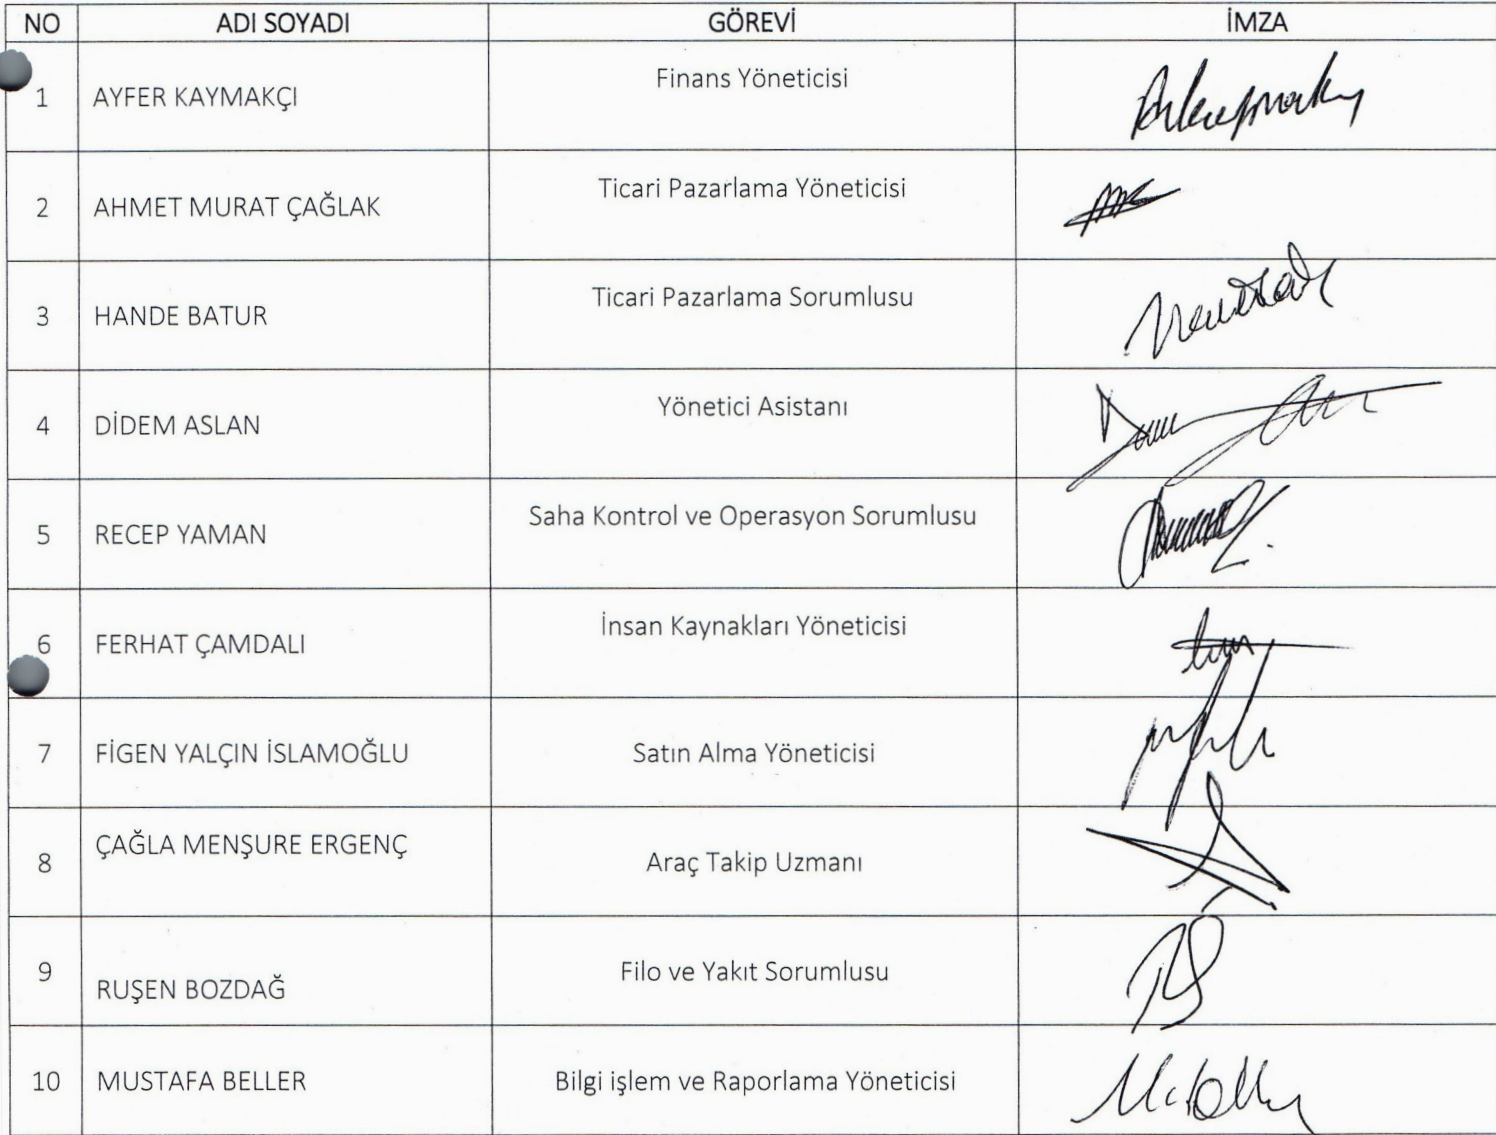 NO ADI SOYADI GÖREVİ İMZA
1 AYFER KAYMAKÇI Finans Yöneticisi
2 AHMET MURAT ÇAĞLAK Ticari Pazarlama Yöneticisi
3 HANDE BATUR Ticari Pazarlama Sorumlusu
4 DİDEM ASLAN Yönetici Asistanı
5 RECEP YAMAN Saha Kontrol ve Operasyon Sorumlusu
6 FERHAT ÇAMDALI İnsan Kaynakları Yöneticisi
7 FİGEN YALÇIN İSLAMOĞLU Satın Alma Yöneticisi
8 ÇAĞLA MENŞURE ERGENÇ Araç Takip Uzmanı
9 RUŞEN BOZDAĞ Filo ve Yakıt Sorumlusu
10 MUSTAFA BELLER Bilgi işlem ve Raporlama Yöneticisi